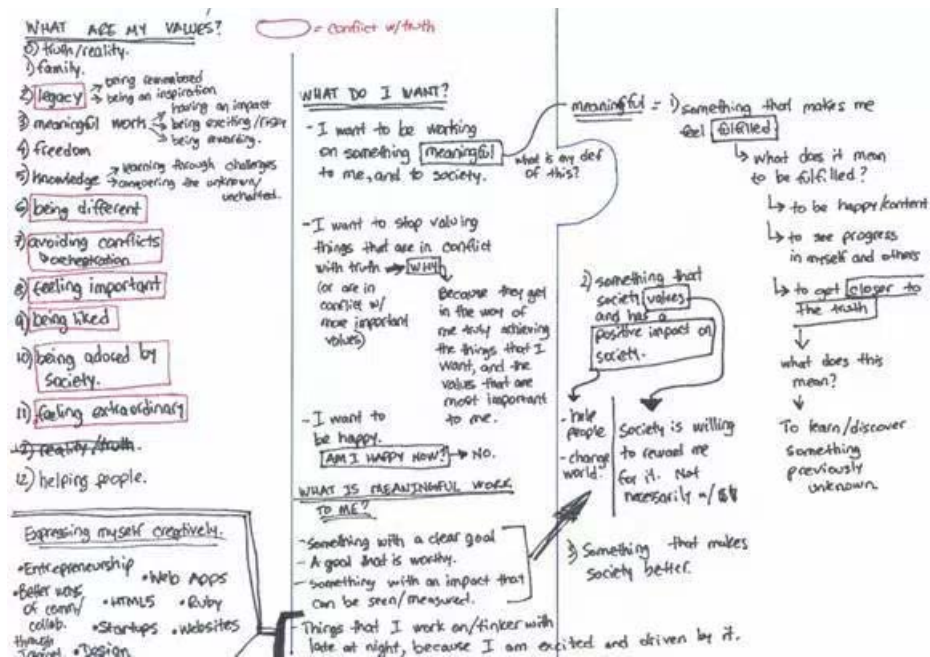 WHAT ARE MY VALUES?
= conflict w/truth
0) truth/reality.
1) family.
2) legacy
being remembered
being an inspiration
3) meaningful work
having an impact
being exciting/risky
being rewarding.
4) freedom
5) knowledge
learning through challenges
conquering the unknown/
uncharted.
6) being different
7) avoiding conflicts
orchestration
8) feeling important
9) being liked
10) being adored by
society.
11) feeling extraordinary
12) reality/truth.
12) helping people.
Expressing myself creatively.
• Entrepreneurship
• Web Apps
• Better ways
of comm/
collab.
through
• HTML5
• Ruby
• Startups
• Websites
• Design
WHAT DO I WANT?
- I want to be working
on something meaningful
to me, and to society.
what is my def
of this?
- I want to stop valuing
things that are in conflict
with truth
WHY
(or are in
conflict w/
more important
values)
Because they get
in the way of
me truly achieving
the things that I
want, and the
values that are
most important
to me.
- I want to
be happy.
AM I HAPPY NOW?
NO.
WHAT IS MEANINGFUL WORK
TO ME?
- Something with a clear goal
- A goal that is worthy.
- Something with an impact that
can be seen/measured.
- Things that I work on/tinker with
late at night, because I am excited and driven by it.
meaningful = 1) something that makes me
feel fulfilled.
what does it mean
to be fulfilled?
to be happy/content
to see progress
in myself and others
to get closer to
the truth
what does this
mean?
To learn/discover
something
previously
unknown.
2) something that
society values
and has a
positive impact on
society.
- help
people
- change
world.
Society is willing
to reward me
for it. Not
necessarily w/ $$
3) Something that makes
society better.